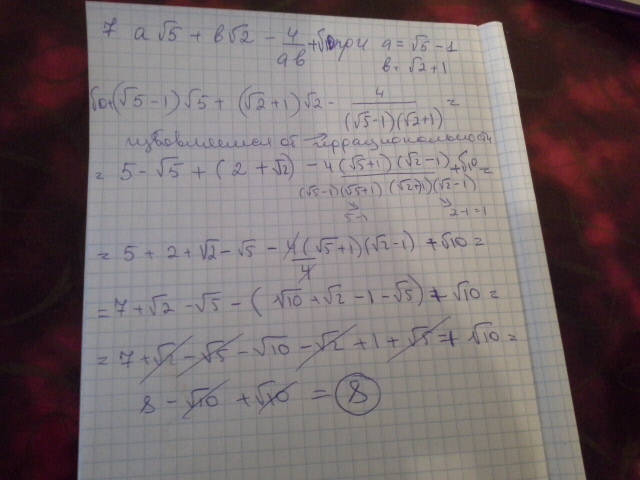 7 a√5 + b√2 - 4/ab + √10 при a = √5 - 1
b = √2 + 1
√10 + (√5 - 1)√5 + (√2 + 1)√2 - 4/((√5 - 1)(√2 + 1)) =
избавляемся от иррациональности
= 5 - √5 + (2 + √2) - 4(√5+1)(√2-1)/((√5-1)(√5+1)(√2+1)(√2-1)) + √10 =
5-1 2-1=1
= 5 + 2 + √2 - √5 - 4(√5+1)(√2-1)/4 + √10 =
= 7 + √2 - √5 - (√10 + √2 - 1 - √5) + √10 =
= 7 + √2 - √5 - √10 - √2 + 1 + √5 + √10 =
8 - √10 + √10 = 8